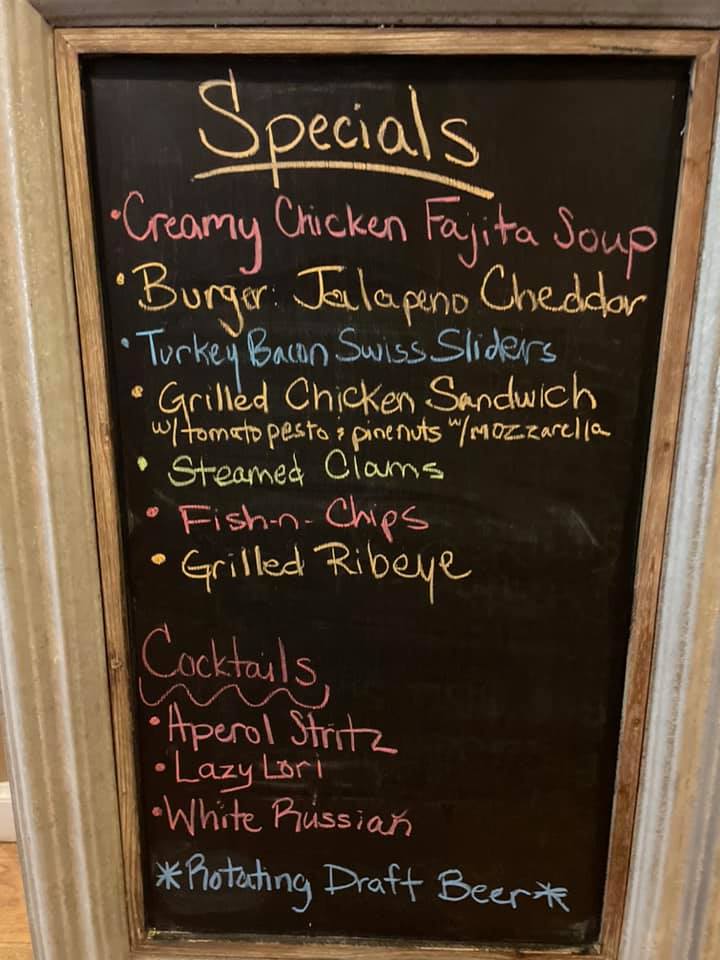 Specials
•Creamy Chicken Fajita Soup
•Burger: Jalapeno Cheddar
•Turkey Bacon Swiss Sliders
• Grilled Chicken Sandwich
w/tomato pesto & pinenuts w/mozzarella
• Steamed Clams
• Fish-n-Chips
• Grilled Ribeye
Cocktails
•Aperol Stritz
•Lazy Lori
•White Russian
*Rotating Draft Beer*